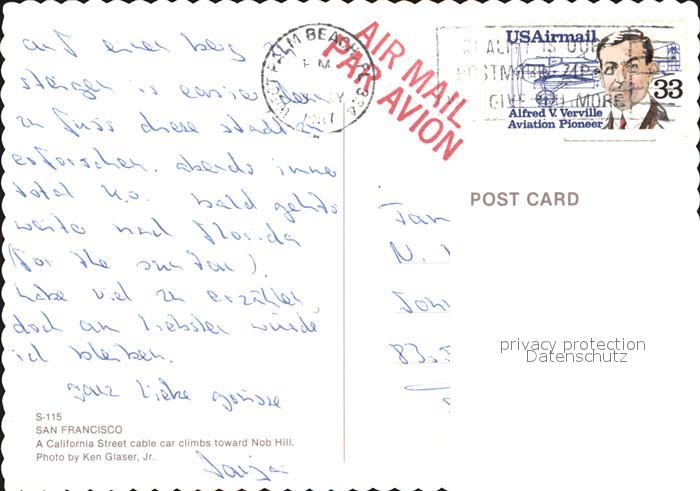 auf einen berg
steigen is easier denn
zu fuss diese stadt zu
erforschen. abends immer
total k.o. bald gehts
weiter nach Florida
(for the suntan).
habe viel zu erzählen,
doch am liebsten würde
ich bleiben.
ganz liebe grüsse
S-115
SAN FRANCISCO
A California Street cable car climbs toward Nob Hill.
Photo by Ken Glaser, Jr.
WEST PALM BEACH
PM
AIR MAIL
PAR AVION
QUALITY IS OUR
POSTMARK ZIP
GIVE YOU MORE
USAirmail
33
Alfred V. Verville
Aviation Pioneer
POST CARD
Fam
N.
privacy protection
Datenschutz